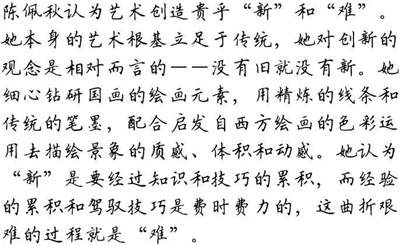 陈佩秋认为艺术创造贵乎“新”和“难”。
她本身的艺术根基立足于传统，她对创新的
观念是相对而言的——没有旧就没有新。她
细心钻研国画的绘画元素，用精炼的线条和
传统的笔墨，配合启发自西方绘画的色彩运
用去描绘景象的质感、体积和动感。她认为
“新”是要经过知识和技巧的累积，而经验
的累积和驾驭技巧是费时费力的，这曲折艰
难的过程就是“难”。